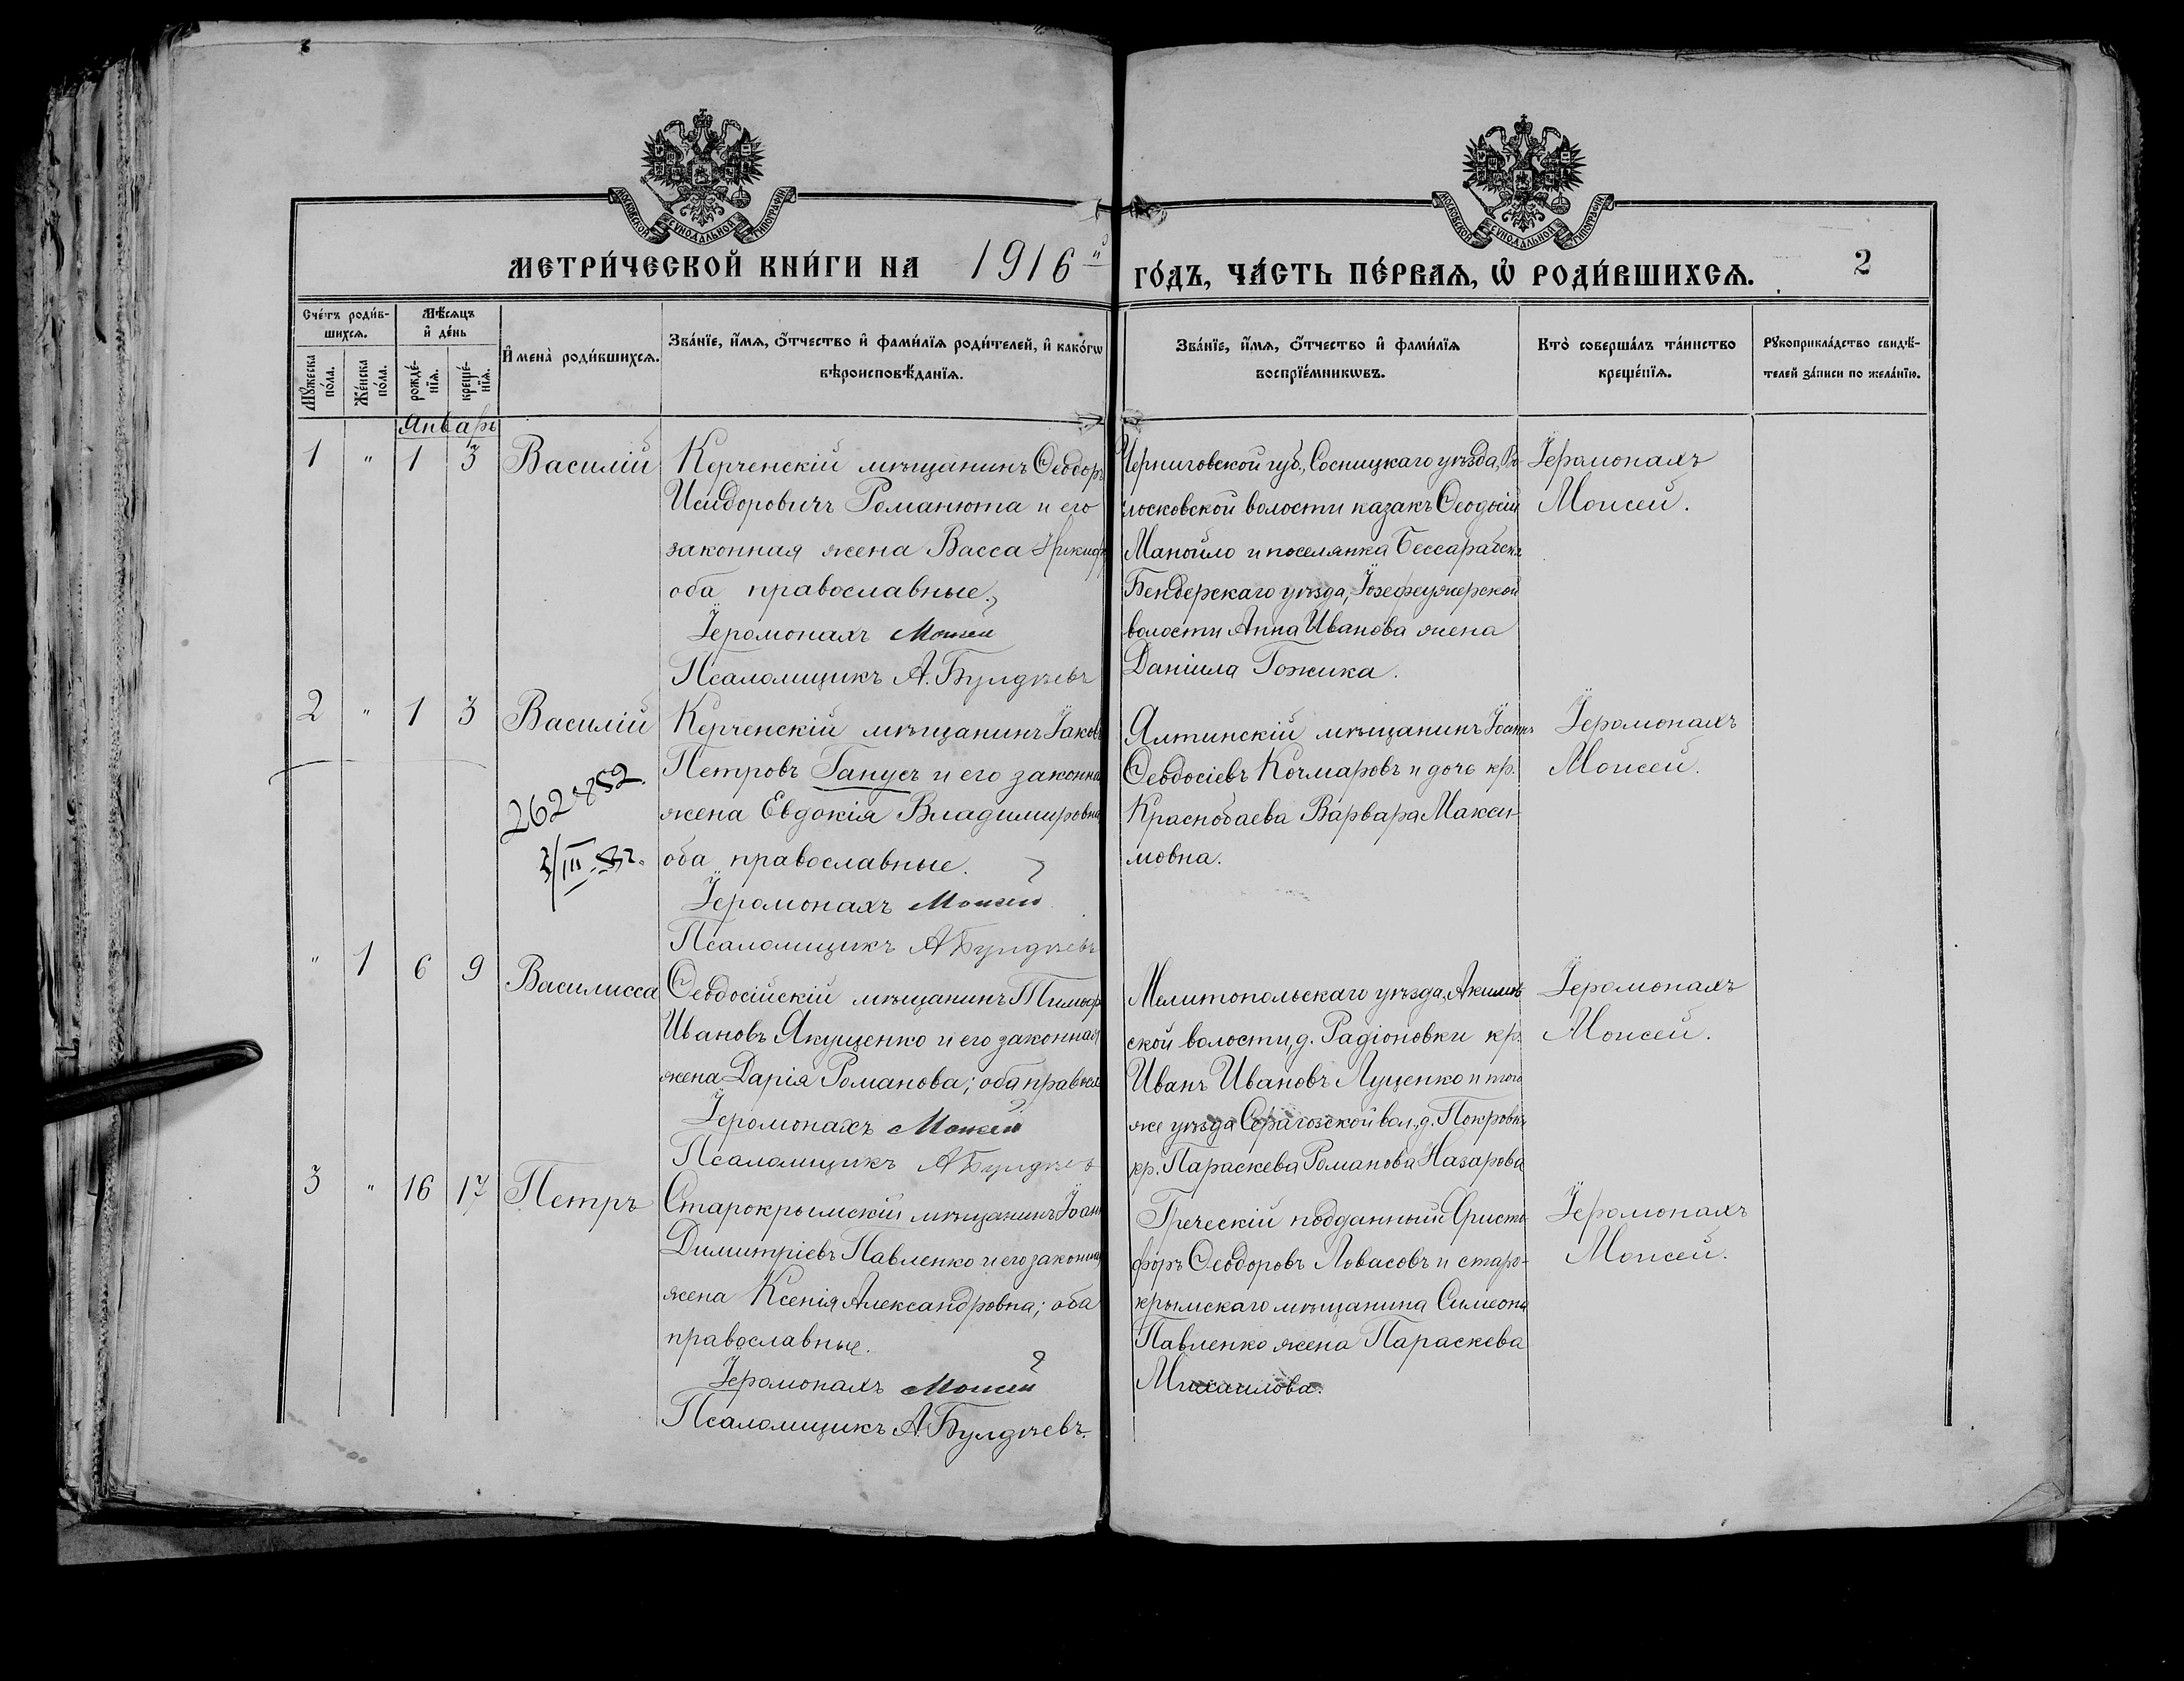 МОСКОВСКОЙ СѴНОДАЛЬНОЙ ТИПОГРАФІИ
МОСКОВСКОЙ СѴНОДАЛЬНОЙ ТИПОГРАФІИ
МЕТРИ́ЧЕСКОЙ КНИ́ГИ НА 1916й ГО́ДЪ, ЧА́СТЬ ПЕ́РВАѦ, Ѡ҆ РОДИ́ВШИХСѦ.
2
Сче́тъ роди́в-
шихсѧ.
Мѣ́сѧцъ
и҆ де́нь
Мꙋ́жеска
по́ла.
Же́нска
по́ла.
рожде́-
нїѧ.
креще́-
нїѧ.
И҆мена̀ роди́вшихсѧ.
Зва́нїе, и҆́мѧ, ѻ҆́тчество и҆ фами́лїѧ роди́телей, и҆ како́гѡ
вѣроисповѣ́данїѧ.
Зва́нїе, и҆́мѧ, ѻ҆́тчество и҆ фами́лїѧ
воспрїе́мникѡвъ.
Кто̀ соверша́лъ та́инство
креще́нїѧ.
Рꙋкоприкла́дство свидѣ́-
телей за́писи по жела́нїю.
Январь
1 " 1 3 Василій
Керченскій мѣщанинъ Ѳеодоръ
Исидоровичъ Романюта и его
законная жена Васса Никиф
оба православные.
Іеромонахъ Моисей
Псаломщикъ А. Булдѣевъ
Черниговской губ., Сосницкаго уѣзда,
лосковской волости казакъ Ѳеодосій
Манойло и поселянка Бессарабск
Бендерскаго уѣзда,
волости Анна Иванова жена
Даніила Гожика.
Іеромонахъ
Моисей.
2 " 1 3 Василій
262852.
3/III-52.
Керченскій мѣщанинъ Іаковъ
Петровъ Ганусъ и его законна
жена Евдокія Владимировна
оба православные.
Іеромонахъ Моисей
Псаломщикъ А Булдѣевъ
Ялтинскій мѣщанинъ Іоаннъ
Ѳеодосіевъ Кочмаровъ и дочь кр.
Краснобаева Варвара Макси-
мовна.
Іеромонахъ
Моисей.
" 1 6 9 Василисса
Ѳеодосійскій мѣщанинъ Тимоф
Ивановъ Якущенко и его законная
жена Дарія Романова; оба правосл
Іеромонахъ Моисей
Псаломщикъ А Булдѣев
Мелитопольскаго уѣзда, Акимов
ской волости, д. Радіоновки кр.
Иванъ Ивановъ Луценко и того
же уѣзда Серагозской вол., д. Покровки
кр. Параскева Романова Назарова
Іеромонахъ
Моисей.
3 " 16 17 Петръ
Старокрымскій мѣщанинъ Іоан
Димитріевъ Павленко и его законная
жена Ксенія Александровна; оба
православные.
Іеромонахъ Моисей
Псаломщикъ А. Булдѣевъ.
Греческій подданный Христо
форъ Ѳеодоровъ Ловасовъ и старо-
крымскаго мѣщанина Симеона
Павленко жена Параскева
Михаилова.
Іеромонахъ
Моисей.